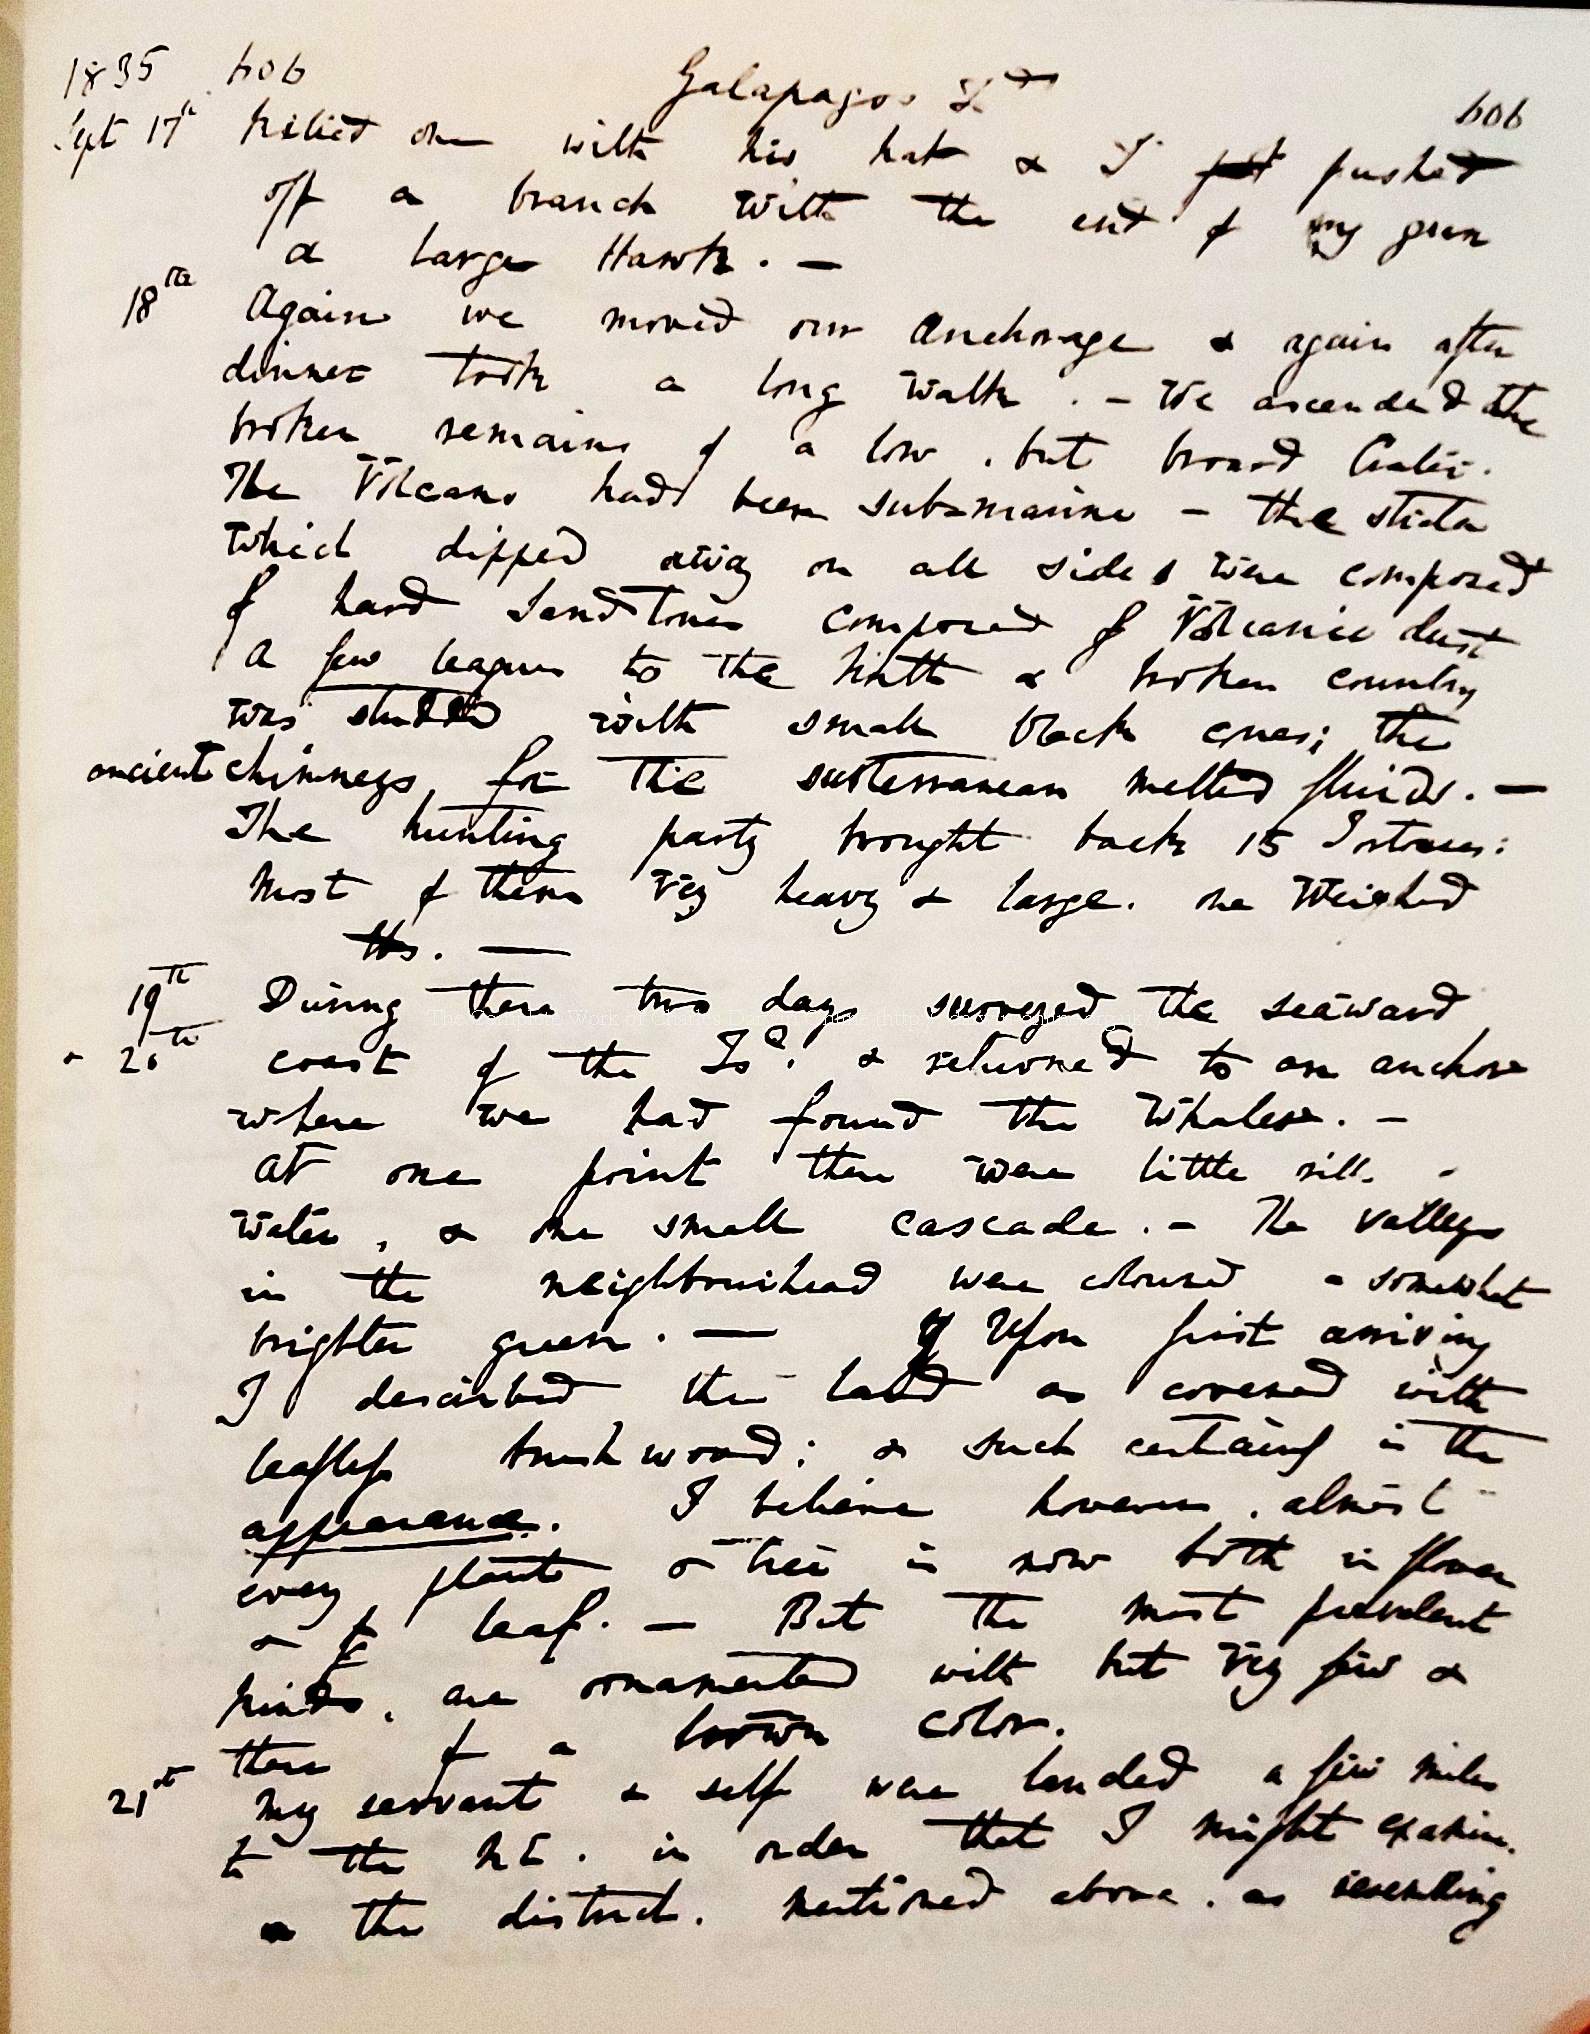 1835 606 Galapagos Is 606
Sept 17th killed one with his hat & I pushed
off a branch with the end of my gun
a large Hawk. —
18th Again we moved our Anchorage & again after
dinner took a long walk. — We ascended the
broken remains of a low, but broard Crater.
The Volcano had been sub-marine — the strata
which dipped away on all sides were composed
of hard Sandstones composed of Volcanic dust
A few leagues to the North a broken country
was studded with small black cones; the
ancient chimneys for the subterranean melted fluids. —
The hunting party brought back 15 Tortoises:
most of them very heavy & large. One weighed
lbs. —
19th During these two days surveyed the seaward
& 20th coast of the Isd. & returned to an anchor
where we had found the Whaler. —
At one point there were little rills
water, & one small cascade. — The valleys
in the neighbourhead were coloured a somewhat
brighter green. — Upon first arriving
I described the land as covered with
leafless brushwood; & such certainly is the
appearance. I believe however, almost
every plant or tree is now both in flower
& leaf. — But the most prevalent
kinds, are ornamented with but very few &
these of a brown color.
21st My servant & self were landed a few miles
to the NE. in order that I might examine
the district, mentioned above, as resembling